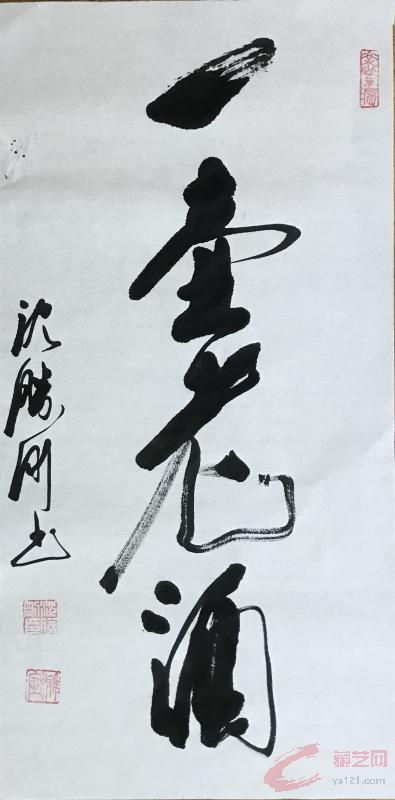 一壶老酒
沈勝刚书
藏艺网
ys121.com